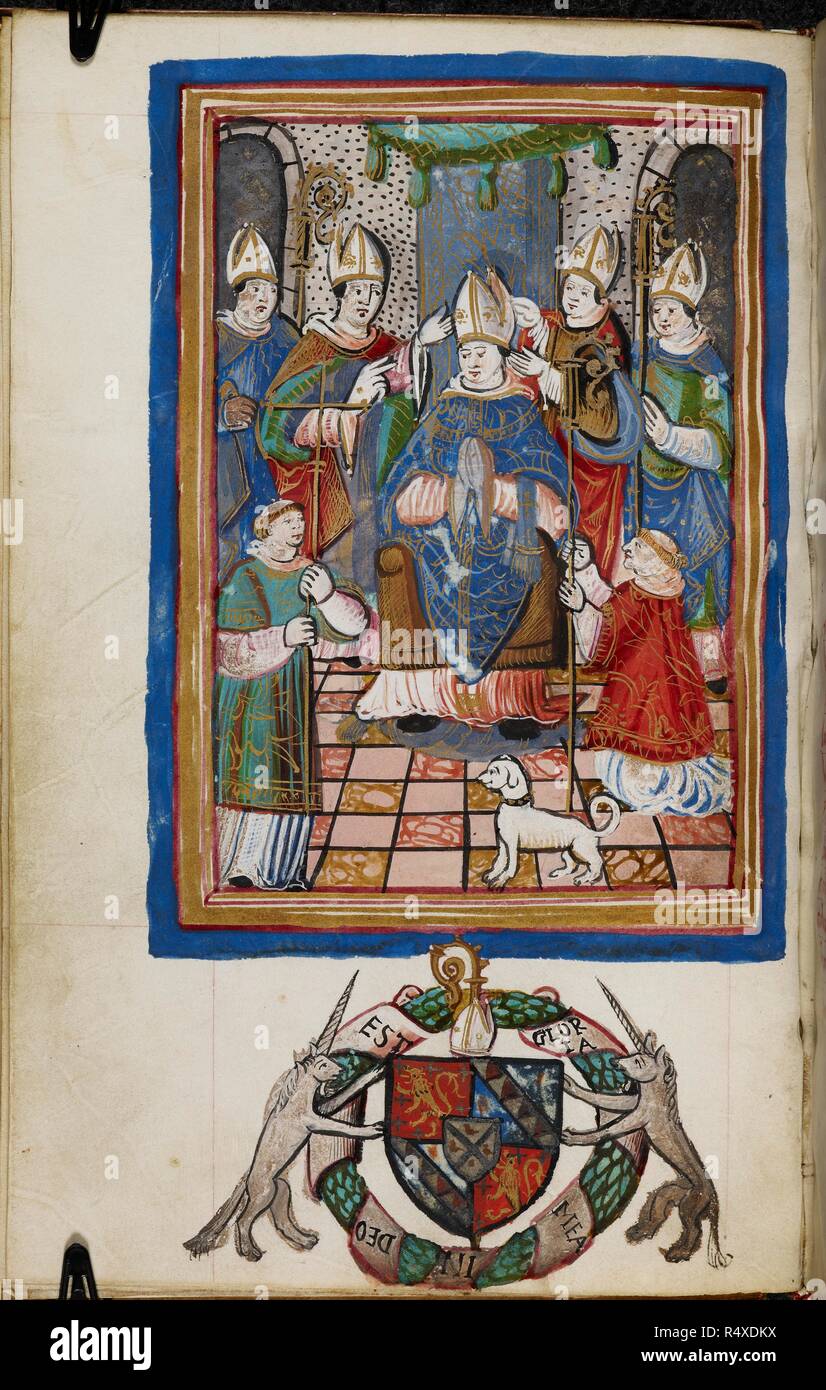 EST
GLOR
IA
DEO
III
MEA
alamy
Image ID: R4XDKX
www.alamy.com